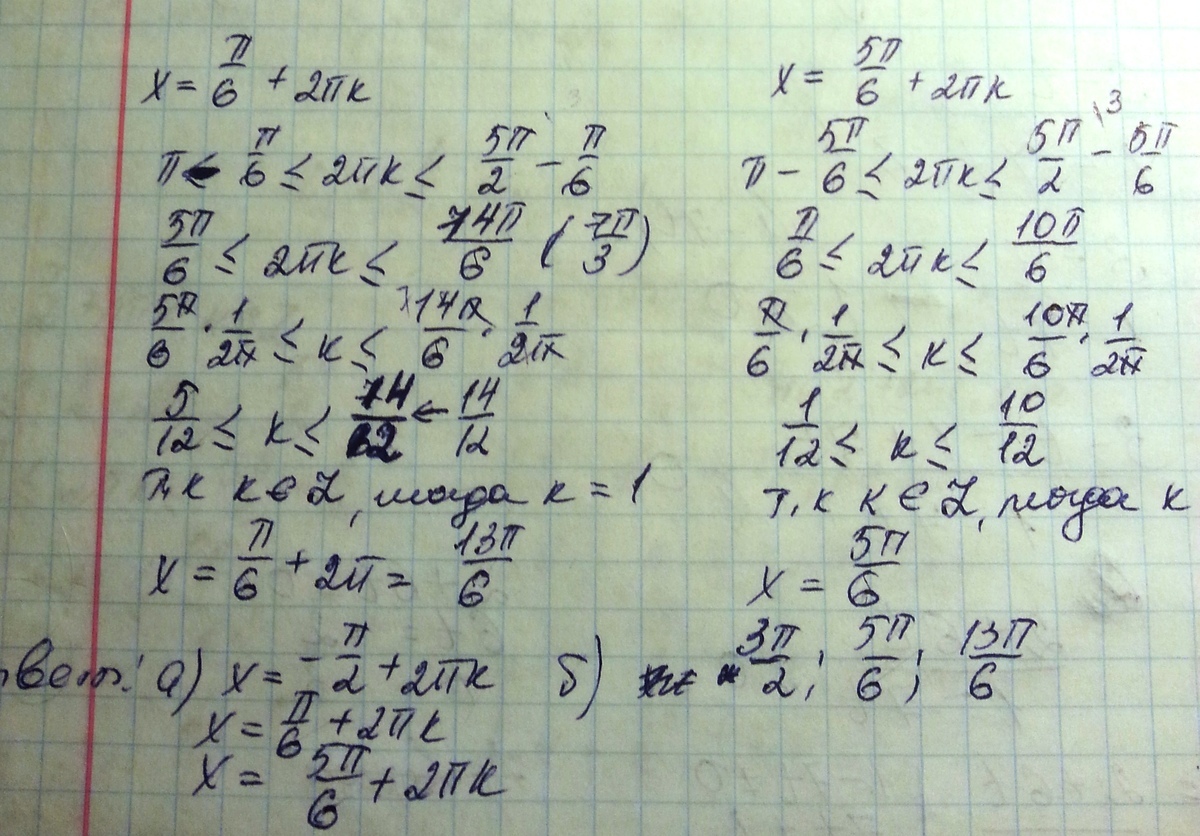 x = π/6 + 2πk
π ≤ π/6 ≤ 2πk ≤ 5π/2 − π/6
5π/6 ≤ 2πk ≤ 14π/6 (7π/3)
5π/6 · 1/2π ≤ k ≤ 14π/6 · 1/2π
5/12 ≤ k ≤ 14/12 ← 14/12
т.к k ∈ Z, тогда k = 1
x = π/6 + 2π = 13π/6
x = 5π/6 + 2πk
π − 5π/6 ≤ 2πk ≤ 5π/2 \3 − 5π/6
π/6 ≤ 2πk ≤ 10π/6
π/6 · 1/2π ≤ k ≤ 10π/6 · 1/2π
1/12 ≤ k ≤ 10/12
т.к k ∈ Z, тогда k
x = 5π/6
твет: а) x = −π/2 + 2πk б) 3π/2; 5π/6; 13π/6
x = π/6 + 2πk
x = 5π/6 + 2πk